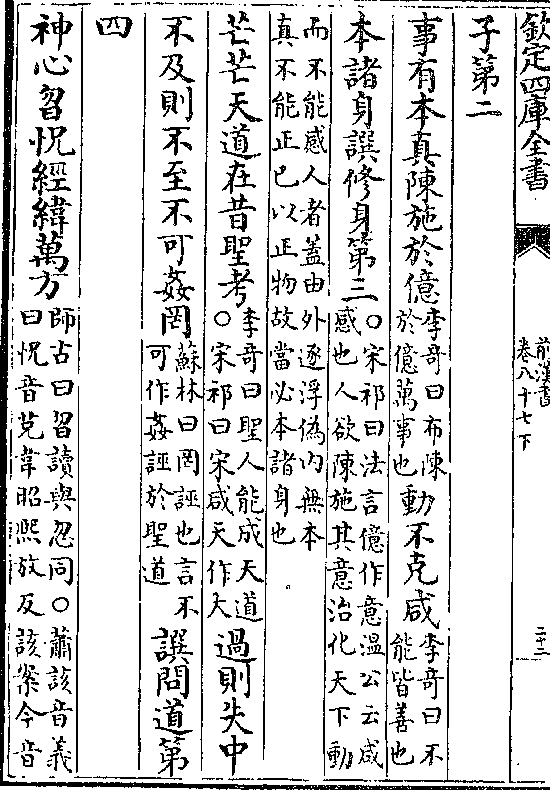 欽定四庫全書
前漢書
卷八十七下
二十三
子第二
事有本真陳施於億李奇曰布陳
於億萬事也動不克咸李奇曰不
能皆善也
本諸身譔修身第三○宋祁曰法言億作意温公云咸
感也人欲陳施其意治化天下動
而不能感人者蓋由外逐浮偽内無本
真不能正已以正物故當必本諸身也
芒芒天道在昔聖考李奇曰聖人能成天道
○宋祁曰宋咸天作大過則失中
不及則不至不可姦罔蘇林曰罔誣也言不
可作姦誣於聖道譔問道第
四
神心曶怳經緯萬方師古曰曶讀與忽同○蕭該音義
曰怳音克韋昭熈放反該案今音